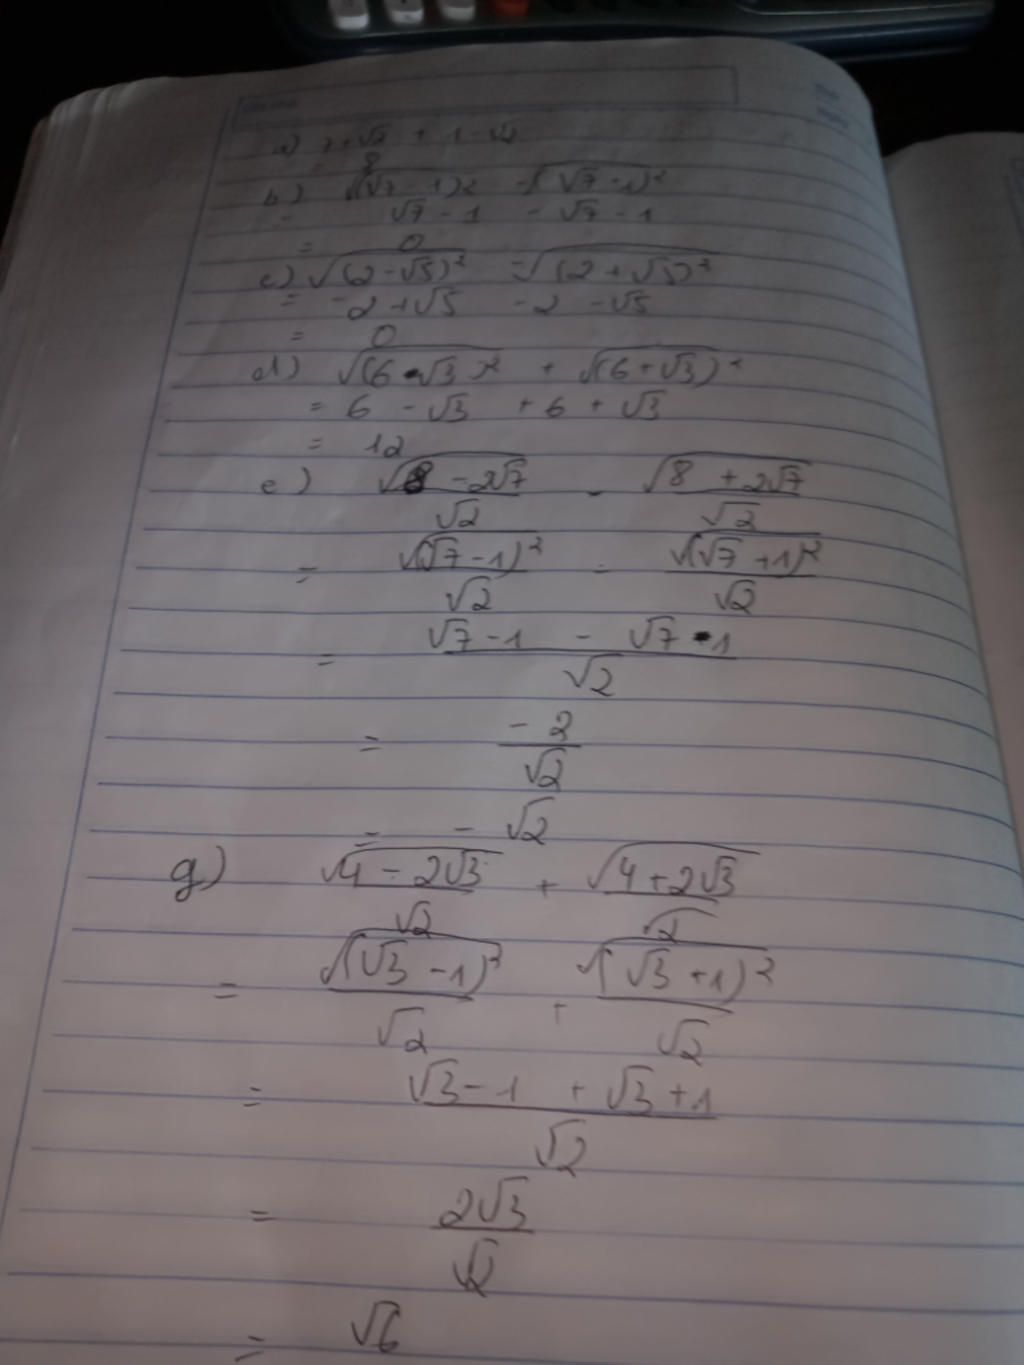 a) 7 + √2 + 1 - √2
= 8
b) √(√7 - 1)² - √(√7 - 1)²
= √7 - 1 - √7 - 1
= 0
c) √(2 - √5)² - √(2 + √5)²
= -2 + √5 - 2 - √5
= 0
d) √(6 - √3)² + √(6 + √3)²
= 6 - √3 + 6 + √3
= 12
e) √8 - 2√7 - √8 + 2√7
√2 √2
= √(√7 - 1)² - √(√7 + 1)²
√2 √2
= √7 - 1 - √7 - 1
√2
= - 2
√2
= - √2
g) √4 - 2√3 + √4 + 2√3
√2 √2
= √(√3 - 1)² + √(√3 + 1)²
√2 √2
= √3 - 1 + √3 + 1
√2
= 2√3
√2
= √6